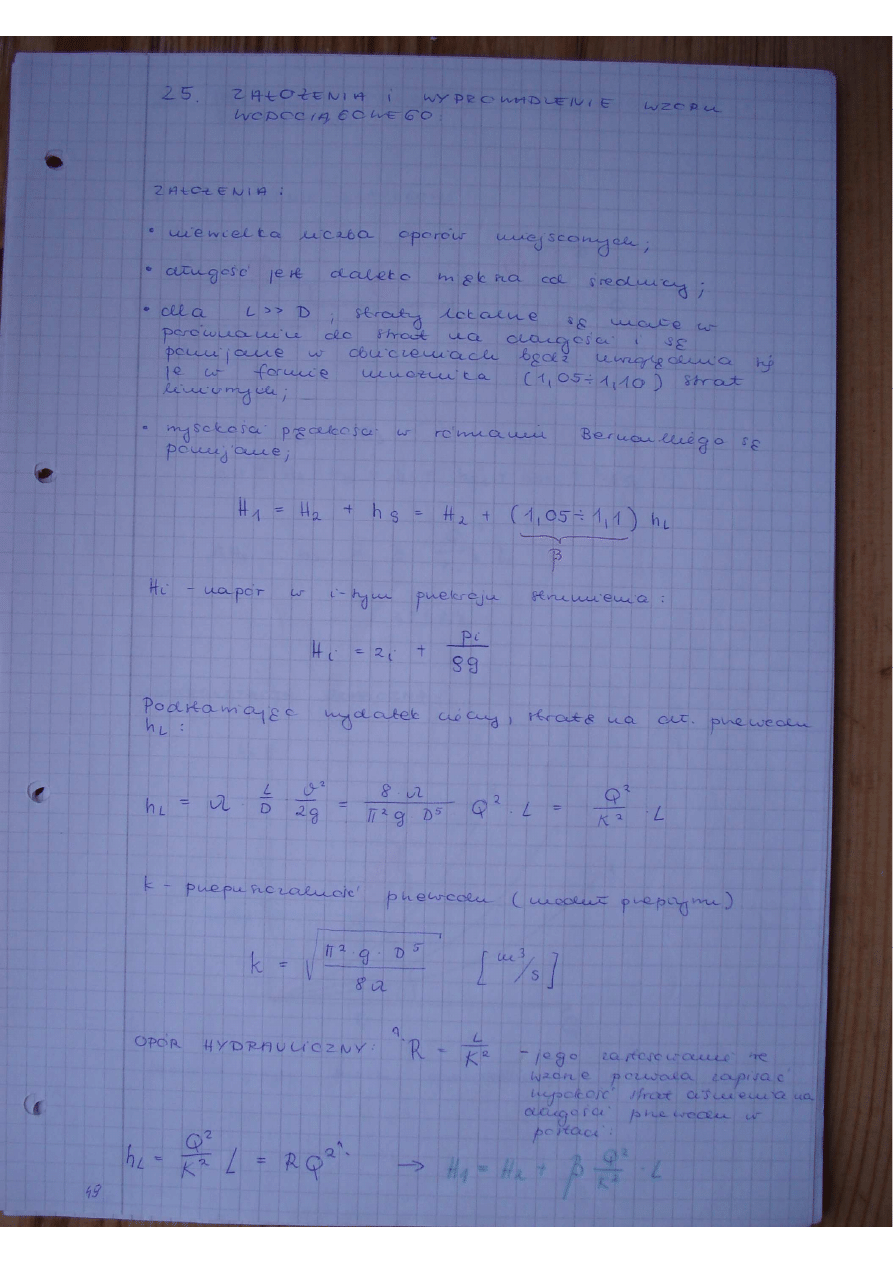 25. ZAŁOŻENIA i WYPROWADZENIE WZORU
WODOCIĄGOWEGO.
ZAŁOŻENIA:
• niewielka liczba oporów miejscowych;
• długość jest daleko większa od średnicy;
• dla L >> D, straty lokalne są małe w
porównaniu do strat na długości i są
pomijane w obliczeniach bądź uwzględnia się
je w formie mnożnika (1,05÷1,10) strat
liniowych;
• wysokości prędkości w równaniu Bernoulliego są
pomijane;
H1 = H2 + hs = H2 + (1,05÷1,1) hL
β
Hi - napór w i-tym przekroju strumienia:
Hi = zi + pi/ρg
Podstawiając wydatek cieczy, stratę na dł. przewodu
hL:
hL = λ · L/D · v²/2g = 8·λ/π²g D⁵ Q² · L = Q²/K² · L
k - przepuszczalność przewodu (moduł przepływu)
k = √(π²·g·D⁵/8λ) [m³/s]
OPÓR HYDRAULICZNY: R = L/K² - jego zastosowanie we
wzorze pozwala zapisać
wysokość strat ciśnienia na
długości przewodu w
postaci:
hL = Q²/K² L = RQ² → H1 = H2 + β Q²/K² · L
49